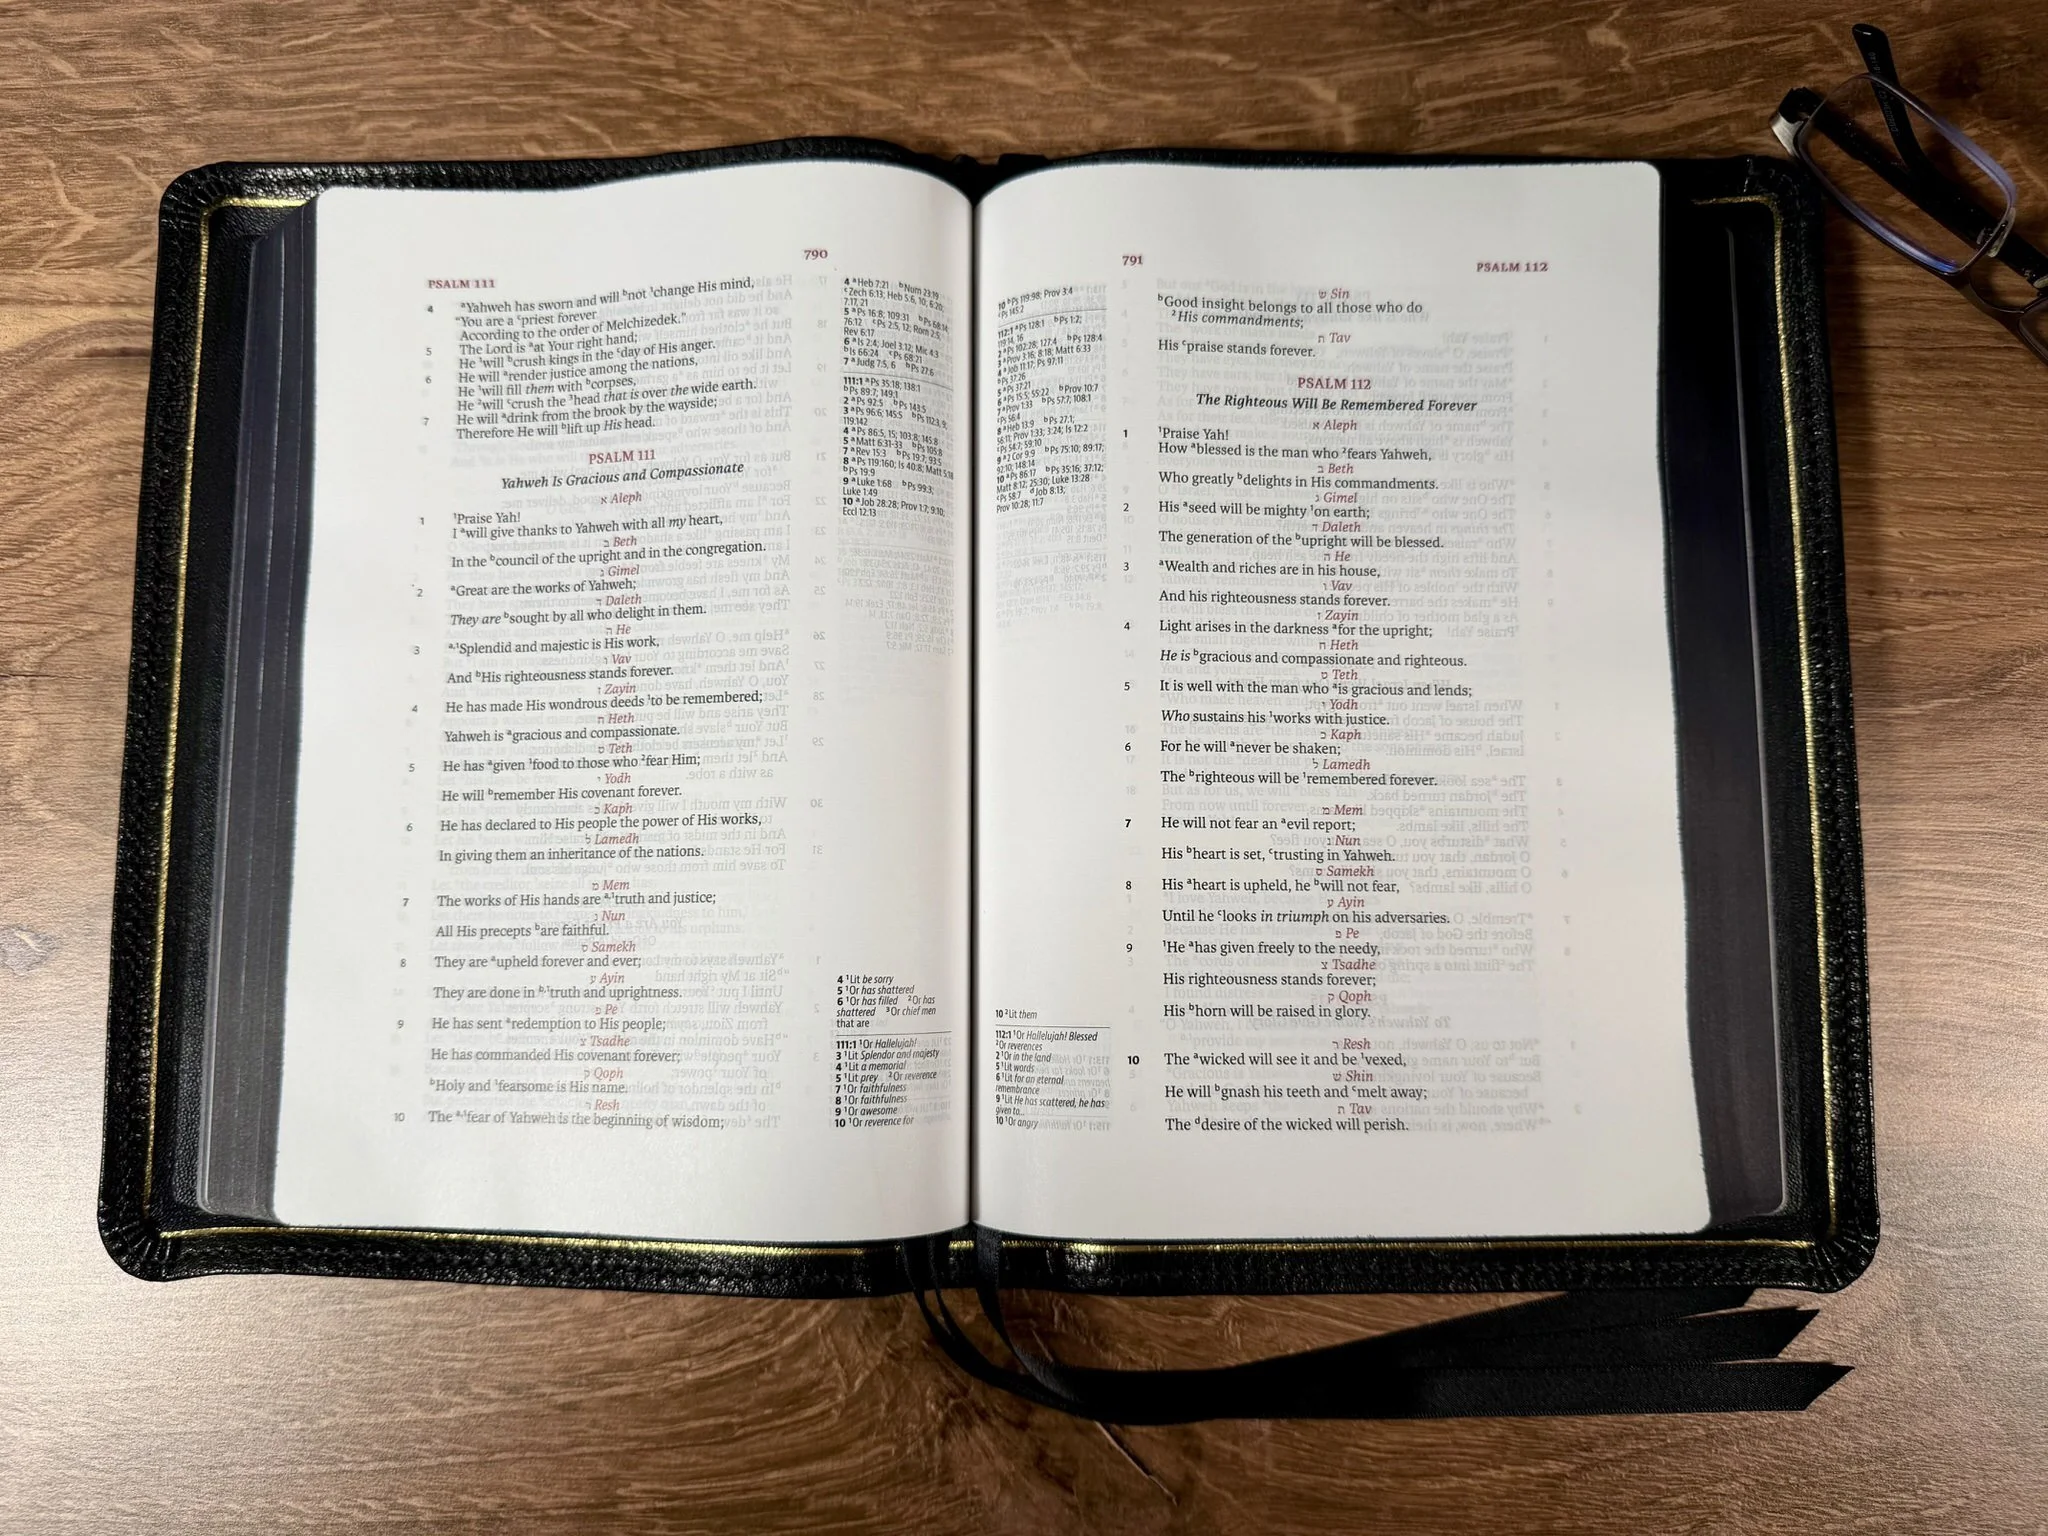 790
PSALM 111
4 ᵃYahweh has sworn and will ᵇnot ¹change His mind,
"You are a ᶜpriest forever
According to the order of Melchizedek."
5 The Lord is ᵃat Your right hand;
He ¹will ᵇcrush kings in the ᶜday of His anger.
6 He will ᵃrender justice among the nations,
He ¹will fill them with ᵇcorpses,
He ²will ᶜcrush the ³head that is over the wide earth.
7 He will ᵃdrink from the brook by the wayside;
Therefore He will ᵇlift up His head.
PSALM 111
Yahweh Is Gracious and Compassionate
א Aleph
1 ¹Praise Yah!
I ᵃwill give thanks to Yahweh with all my heart,
ב Beth
In the ᵇcouncil of the upright and in the congregation.
ג Gimel
2 ᵃGreat are the works of Yahweh;
ד Daleth
They are ᵇsought by all who delight in them.
ה He
3 ᵃ,¹Splendid and majestic is His work,
ו Vav
And ᵇHis righteousness stands forever.
ז Zayin
4 He has made His wondrous deeds ¹to be remembered;
ח Heth
Yahweh is ᵃgracious and compassionate.
ט Teth
5 He has ᵃgiven ¹food to those who ²fear Him;
י Yodh
He will ᵇremember His covenant forever.
כ Kaph
6 He has declared to His people the power of His works,
ל Lamedh
In giving them an inheritance of the nations.
מ Mem
7 The works of His hands are ᵃ,¹truth and justice;
נ Nun
All His precepts ᵇare faithful.
ס Samekh
8 They are ᵃupheld forever and ever;
ע Ayin
They are done in ᵇ,¹truth and uprightness.
פ Pe
9 He has sent ᵃredemption to His people;
צ Tsadhe
He has commanded His covenant forever;
ק Qoph
ᵇHoly and ¹fearsome is His name.
ר Resh
10 The ᵃ,¹fear of Yahweh is the beginning of wisdom;
4 ᵃHeb 7:21 ᵇNum 23:19
ᶜZech 6:13; Heb 5:6, 10; 6:20;
7:17, 21
5 ᵃPs 16:8; 109:31 ᵇPs 68:14;
76:12 ᶜPs 2:5, 12; Rom 2:5;
Rev 6:17
6 ᵃIs 2:4; Joel 3:12; Mic 4:3
ᵇIs 66:24 ᶜPs 68:21
7 ᵃJudg 7:5, 6 ᵇPs 27:6
111:1 ᵃPs 35:18; 138:1
ᵇPs 89:7; 149:1
2 ᵃPs 92:5 ᵇPs 143:5
3 ᵃPs 96:6; 145:5 ᵇPs 112:3, 9;
119:142
4 ᵃPs 86:5, 15; 103:8; 145:8
5 ᵃMatt 6:31-33 ᵇPs 105:8
7 ᵃRev 15:3 ᵇPs 19:7; 93:5
8 ᵃPs 119:160; Is 40:8; Matt 5:18
ᵇPs 19:9
9 ᵃLuke 1:68 ᵇPs 99:3;
Luke 1:49
10 ᵃJob 28:28; Prov 1:7; 9:10;
Eccl 12:13
4 ¹Lit be sorry
5 ¹Or has shattered
6 ¹Or has filled ²Or has
shattered ³Or chief men
that are
111:1 ¹Or Hallelujah!
3 ¹Lit Splendor and majesty
4 ¹Lit a memorial
5 ¹Lit prey ²Or reverence
7 ¹Or faithfulness
8 ¹Or faithfulness
9 ¹Or awesome
10 ¹Or reverence for
791
PSALM 112
10 ᵇPs 119:98; Prov 3:4
ᶜPs 145:2
112:1 ᵃPs 128:1 ᵇPs 1:2;
119:14, 16
2 ᵃPs 102:28; 127:4 ᵇPs 128:4
3 ᵃProv 3:16; 8:18; Matt 6:33
4 ᵃJob 11:17; Ps 97:11
ᵇPs 37:26
5 ᵃPs 37:21
6 ᵃPs 15:5; 55:22 ᵇProv 10:7
7 ᵃProv 1:33 ᵇPs 57:7; 108:1
ᶜPs 56:4
8 ᵃHeb 13:9 ᵇPs 27:1;
56:11; Prov 1:33; 3:24; Is 12:2
ᶜPs 54:7; 59:10
9 ᵃ2 Cor 9:9 ᵇPs 75:10; 89:17;
92:10; 148:14
10 ᵃPs 86:17 ᵇPs 35:16; 37:12;
Matt 8:12; 25:30; Luke 13:28
ᶜPs 58:7 ᵈJob 8:13;
Prov 10:28; 11:7
10 ²Lit them
112:1 ¹Or Hallelujah! Blessed
²Or reverences
2 ¹Or in the land
5 ¹Lit words
6 ¹Lit for an eternal
remembrance
9 ¹Lit He has scattered, he has
given to...
10 ¹Or angry
ש Sin
ᵇGood insight belongs to all those who do
²His commandments;
ת Tav
His ᶜpraise stands forever.
PSALM 112
The Righteous Will Be Remembered Forever
א Aleph
1 ¹Praise Yah!
How ᵃblessed is the man who ²fears Yahweh,
ב Beth
Who greatly ᵇdelights in His commandments.
ג Gimel
2 His ᵃseed will be mighty ¹on earth;
ד Daleth
The generation of the ᵇupright will be blessed.
ה He
3 ᵃWealth and riches are in his house,
ו Vav
And his righteousness stands forever.
ז Zayin
4 Light arises in the darkness ᵃfor the upright;
ח Heth
He is ᵇgracious and compassionate and righteous.
ט Teth
5 It is well with the man who ᵃis gracious and lends;
י Yodh
Who sustains his ¹works with justice.
כ Kaph
6 For he will ᵃnever be shaken;
ל Lamedh
The ᵇrighteous will be ¹remembered forever.
מ Mem
7 He will not fear an ᵃevil report;
נ Nun
His ᵇheart is set, ᶜtrusting in Yahweh.
ס Samekh
8 His ᵃheart is upheld, he ᵇwill not fear,
ע Ayin
Until he ᶜlooks in triumph on his adversaries.
פ Pe
9 ¹He ᵃhas given freely to the needy,
צ Tsadhe
His righteousness stands forever;
ק Qoph
His ᵇhorn will be raised in glory.
ר Resh
10 The ᵃwicked will see it and be ¹vexed,
ש Shin
He will ᵇgnash his teeth and ᶜmelt away;
ת Tav
The ᵈdesire of the wicked will perish.